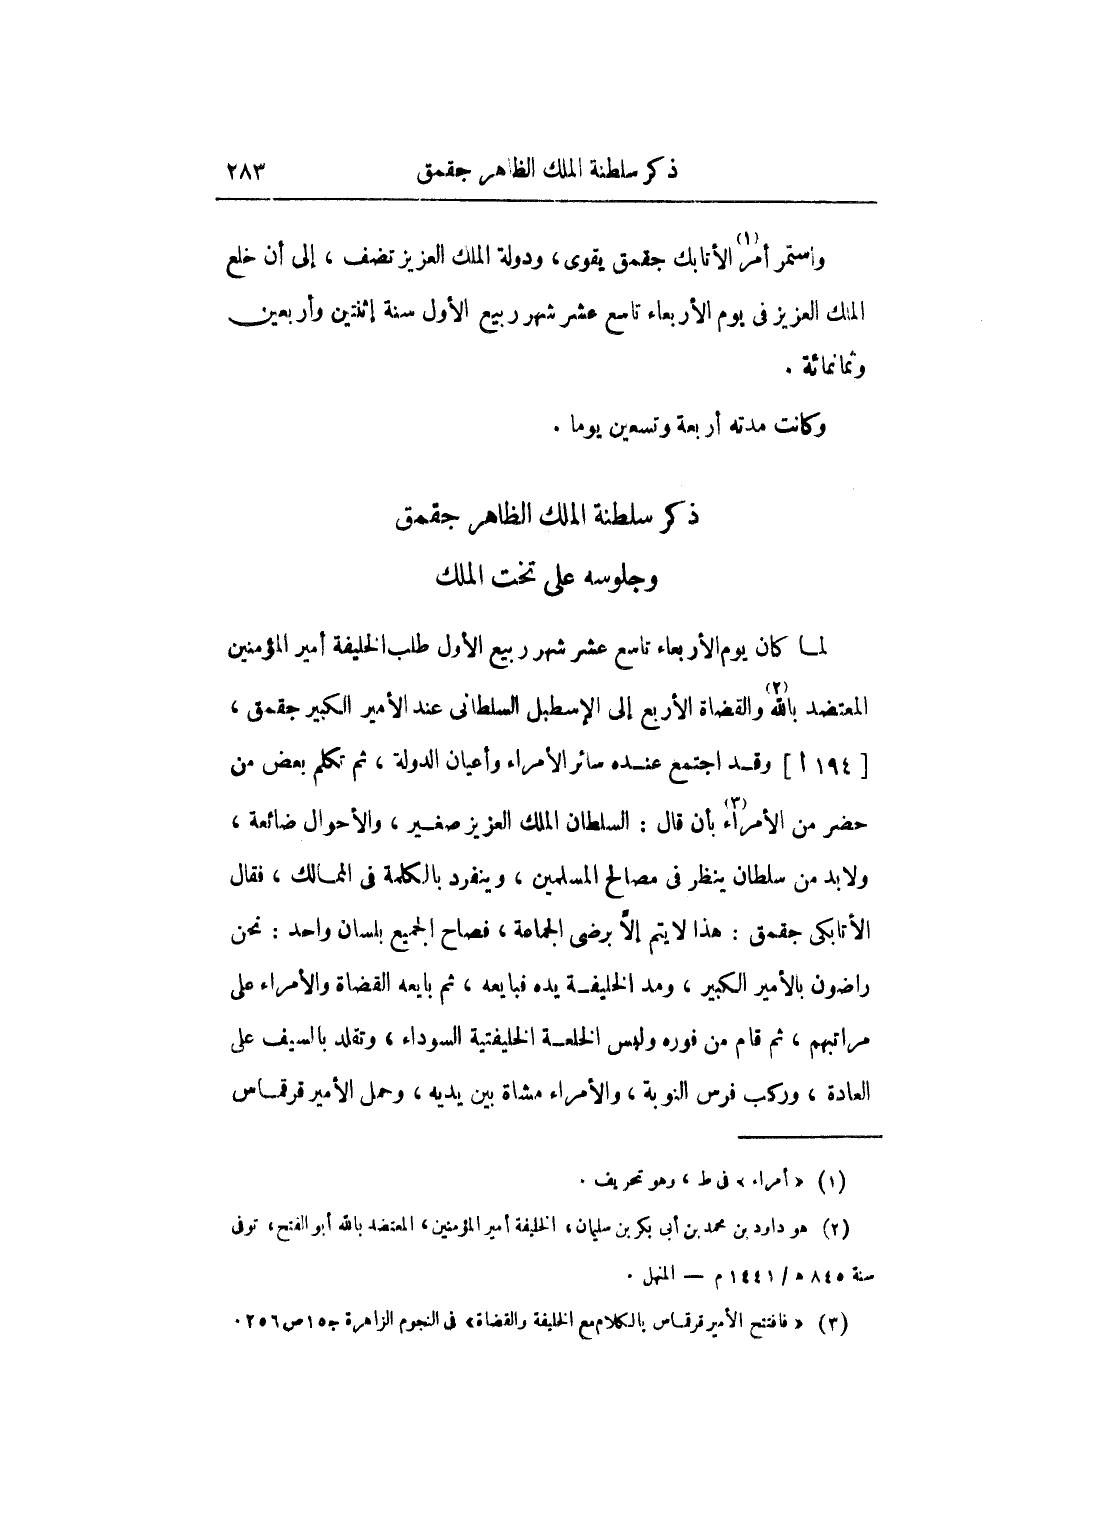 ذكر سلطنة الملك الظاهر جقمق ٢٨٣
واستمر أمر(١) الأتابك جقمق يقوى، ودولة الملك العزيز تضف ، إلى أن خلع
الملك العزيز فى يوم الأربعاء تاسع عشر شهر ربيع الأول سنة إثنتين وأربعين
وثمانمائة .
وكانت مدته أربعة وتسعين يوما .
ذكر سلطنة الملك الظاهر جقمق
وجلوسه على تخت الملك
لما كان يوم الأربعاء تاسع عشر شهر ربيع الأول طلب الخليفة أمير المؤمنين
المعتضد بالله(٢) والقضاة الأربع إلى الإسطبل السلطانى عند الأمير الكبير جقمق ،
[ ١٩٤ أ ] وقد اجتمع عنده سائر الأمراء وأعيان الدولة ، ثم تكلم بعض من
حضر من الأمراء(٣) بأن قال : السلطان الملك العزيز صغير ، والأحوال ضائعة ،
ولابد من سلطان ينظر فى مصالح المسلمين ، وينفرد بالكلمة فى الممالك ، فقال
الأتابكى جقمق : هذا لا يتم إلاَّ برضى الجماعة ، فصاح الجميع بلسان واحد : نحن
راضون بالأمير الكبير ، ومد الخليفة يده فبايعه ، ثم بايعه القضاة والأمراء على
مراتبهم ، ثم قام من فوره ولبس الخلعة الخليفتية السوداء ، وتقلد بالسيف على
العادة ، وركب فرس النوبة ، والأمراء مشاة بين يديه ، وحمل الأمير قرقماس
(١) « أمراء » فى ط ، وهو تحريف .
(٢) هو داود بن محمد بن أبى بكر بن سليمان، الخليفة أمير المؤمنين، المعتضد بالله أبو الفتح، توفى
سنة ٨٤٥ ه / ١٤٤١ م — المنهل .
(٣) « فافتتح الأمير قرقماس بالكلام مع الخليفة والقضاة » فى النجوم الزاهرة ج١٥ ص٢٥٦ .